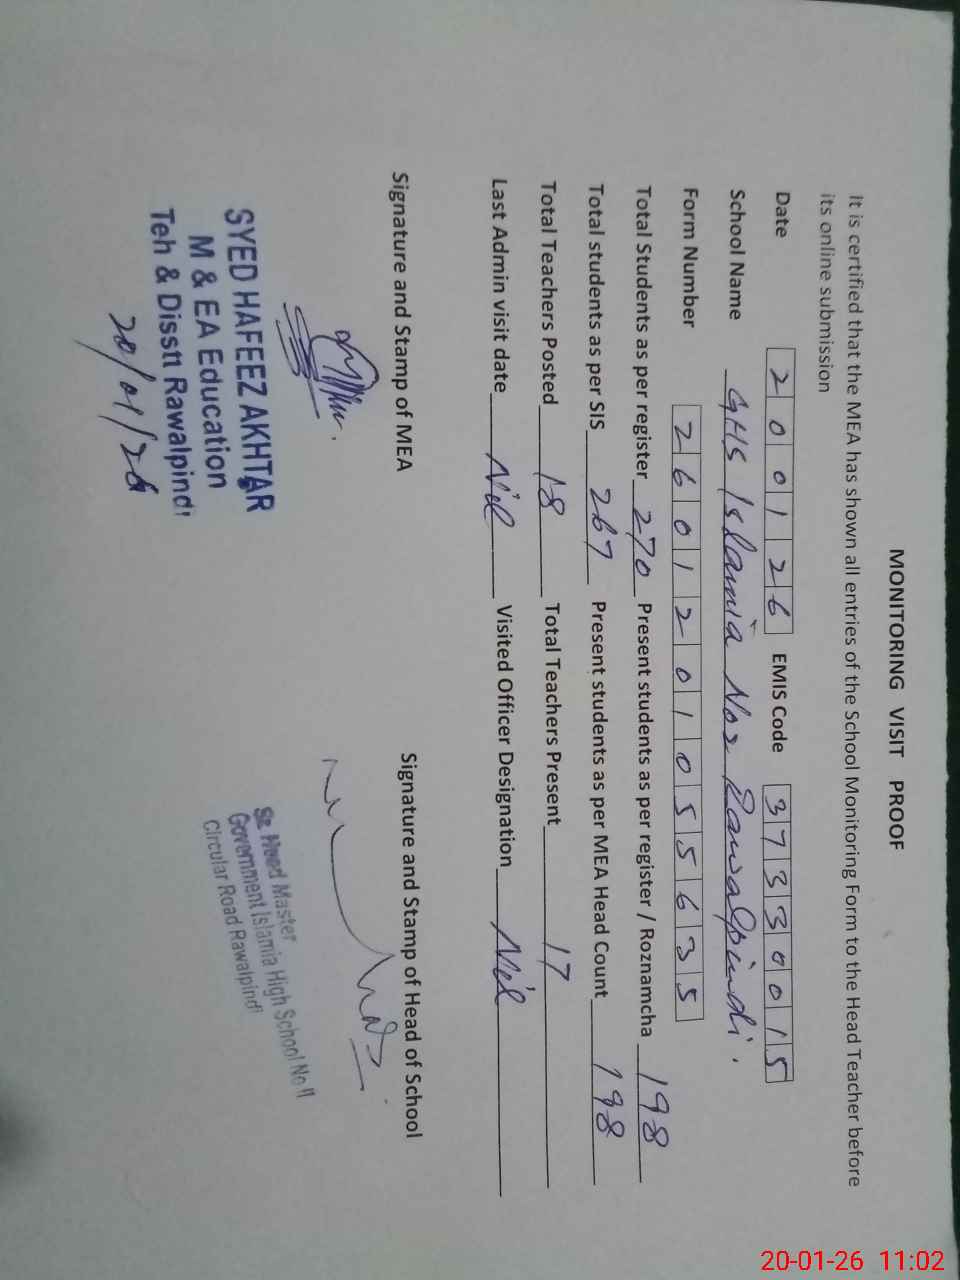 MONITORING VISIT PROOF
It is certified that the MEA has shown all entries of the School Monitoring Form to the Head Teacher before
its online submission
Date 200126 EMIS Code 37330015
School Name GHS Islamia No2 Rawalpindi.
Form Number 2601201055635
Total Students as per register 270 Present students as per register / Roznamcha 198
Total students as per SIS 267 Present students as per MEA Head Count 198
Total Teachers Posted 18 Total Teachers Present 17
Last Admin visit date Nil Visited Officer Designation Nil
Signature and Stamp of MEA Signature and Stamp of Head of School
SYED HAFEEZ AKHTAR
M & EA Education
Teh & Disstt Rawalpindi
20/01/26
Sr. Head Master
Government Islamia High School No.II
Circular Road Rawalpindi
20-01-26 11:02